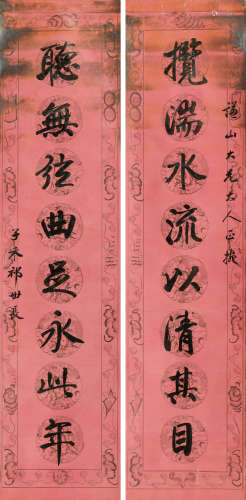 謙山大兄大人正
攬湍水流以清其目
聽無弦曲足永此年
子禾祁世長